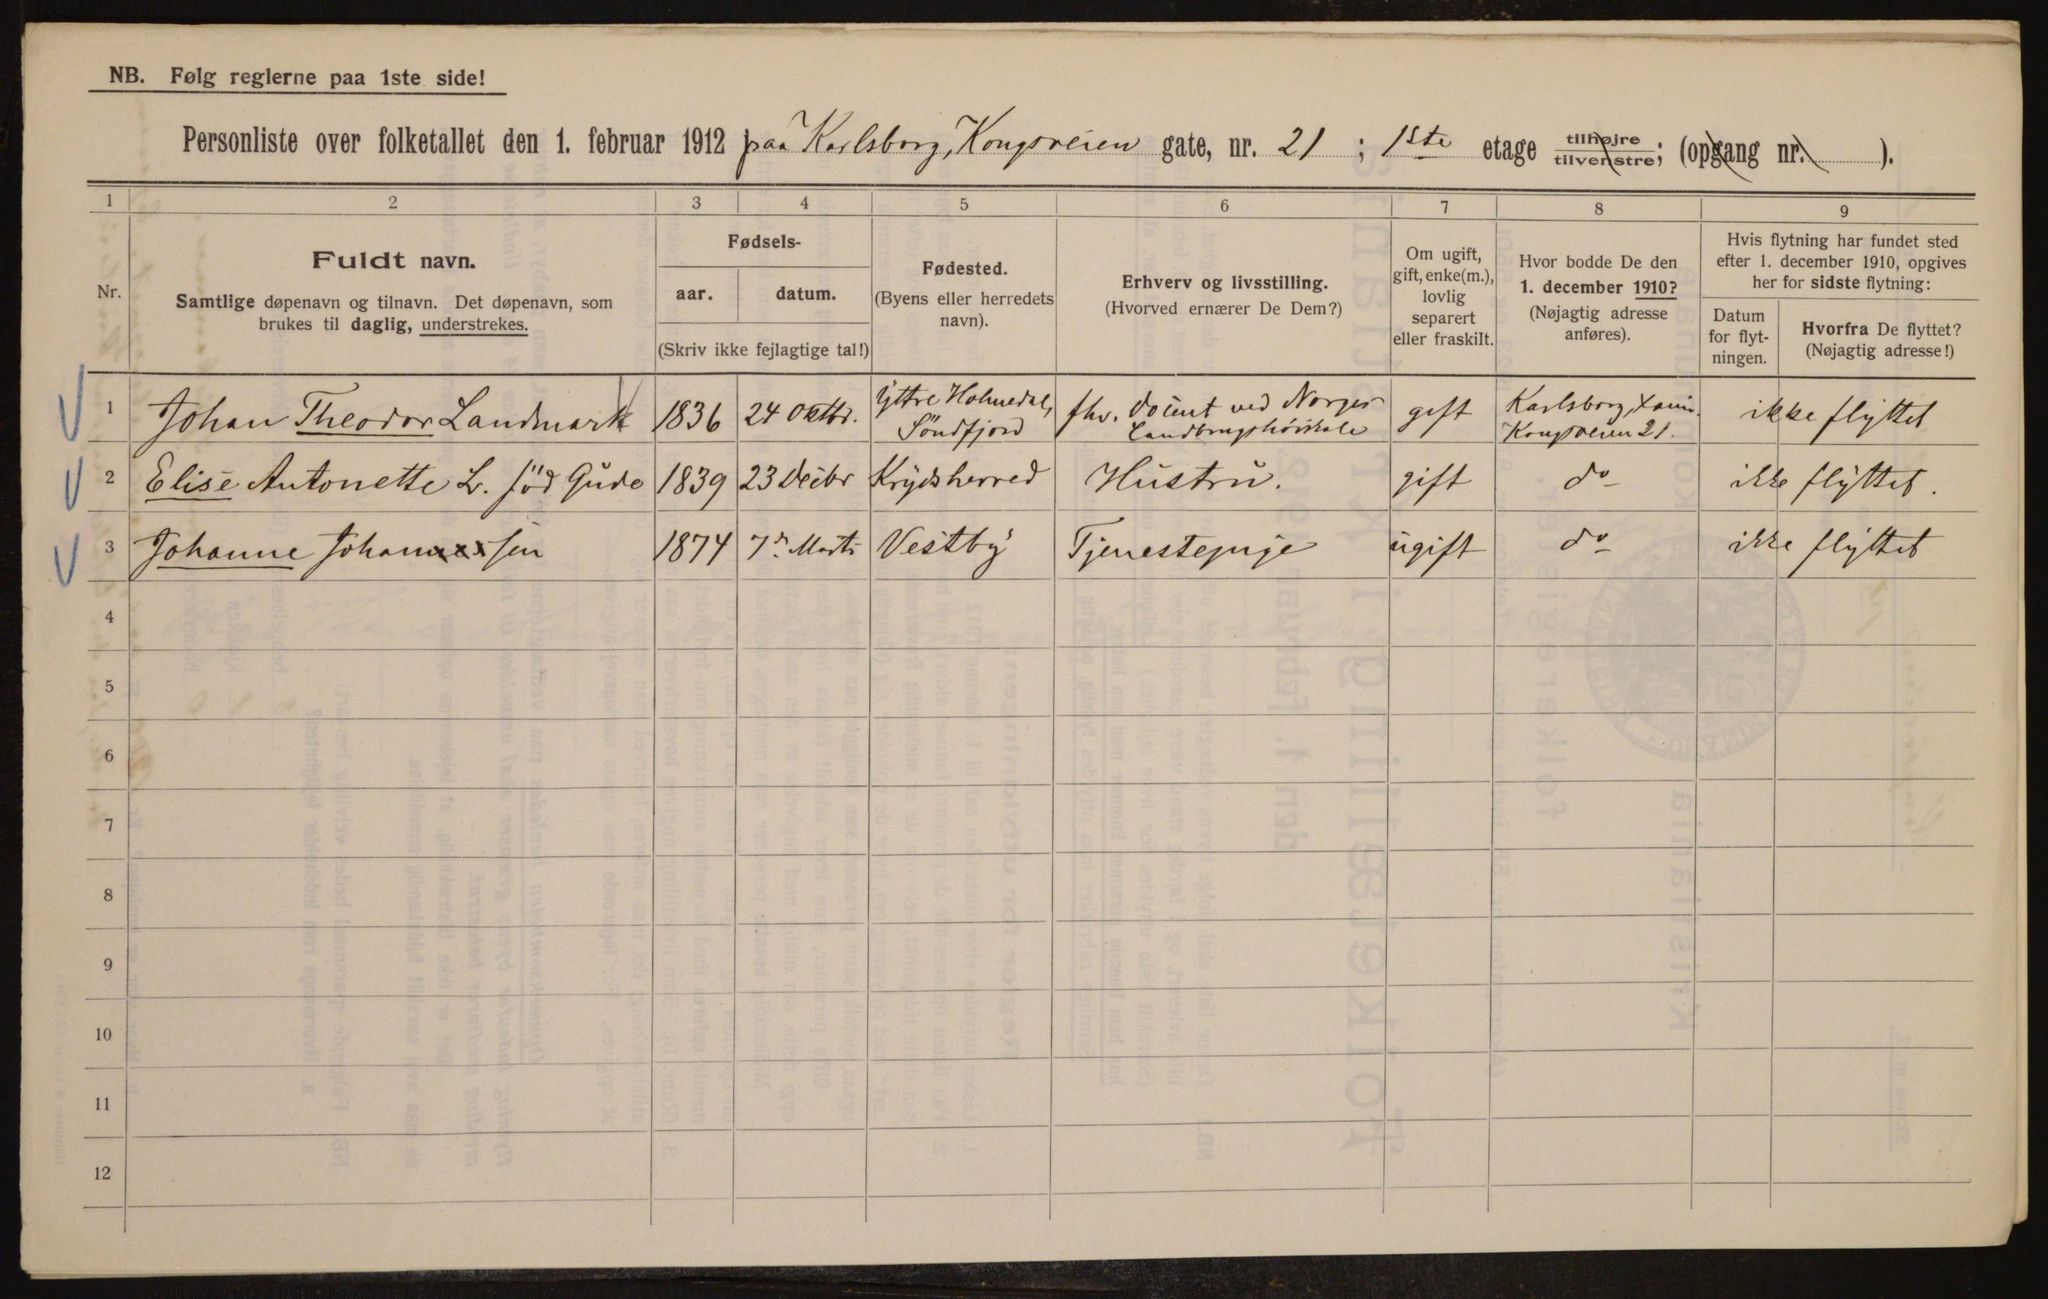 NB. Følg reglerne paa 1ste side!
Personliste over folketallet den 1. februar 1912 paa Karlsborg, Kongsveien gate, nr. 21 ; 1ste etage tilhøjre tilvenstre; (opgang nr. ).
1 2 3 4 5 6 7 8 9
Nr.
Fuldt navn.
Samtlige døpenavn og tilnavn. Det døpenavn, som
brukes til daglig, understrekes.
Fødsels-
aar. datum.
(Skriv ikke fejlagtige tal!)
Fødested.
(Byens eller herredets
navn).
Erhverv og livsstilling.
(Hvorved ernærer De Dem?)
Om ugift,
gift, enke(m.),
lovlig
separert
eller fraskilt.
Hvor bodde De den
1. december 1910?
(Nøjagtig adresse
anføres).
Hvis flytning har fundet sted
efter 1. december 1910, opgives
her for sidste flytning:
Datum
for flyt-
ningen.
Hvorfra De flyttet?
(Nøjagtig adresse!)
1 Johan Theodor Landmark 1836 24 Oktbr. Yttre Holmedal, Søndfjord fhv. docent ved Norges Landbrugshöiskole gift Karlsborg, Kongsveien 21. ikke flyttet
2 Elise Antonette L. fød Gude 1839 23 Decbr Krydsherred Hustru. gift do ikke flyttet.
3 Johanne Johansen 1874 7de Marts Vestby Tjenestepige ugift do ikke flyttet
4
5
6
7
8
9
10
11
12